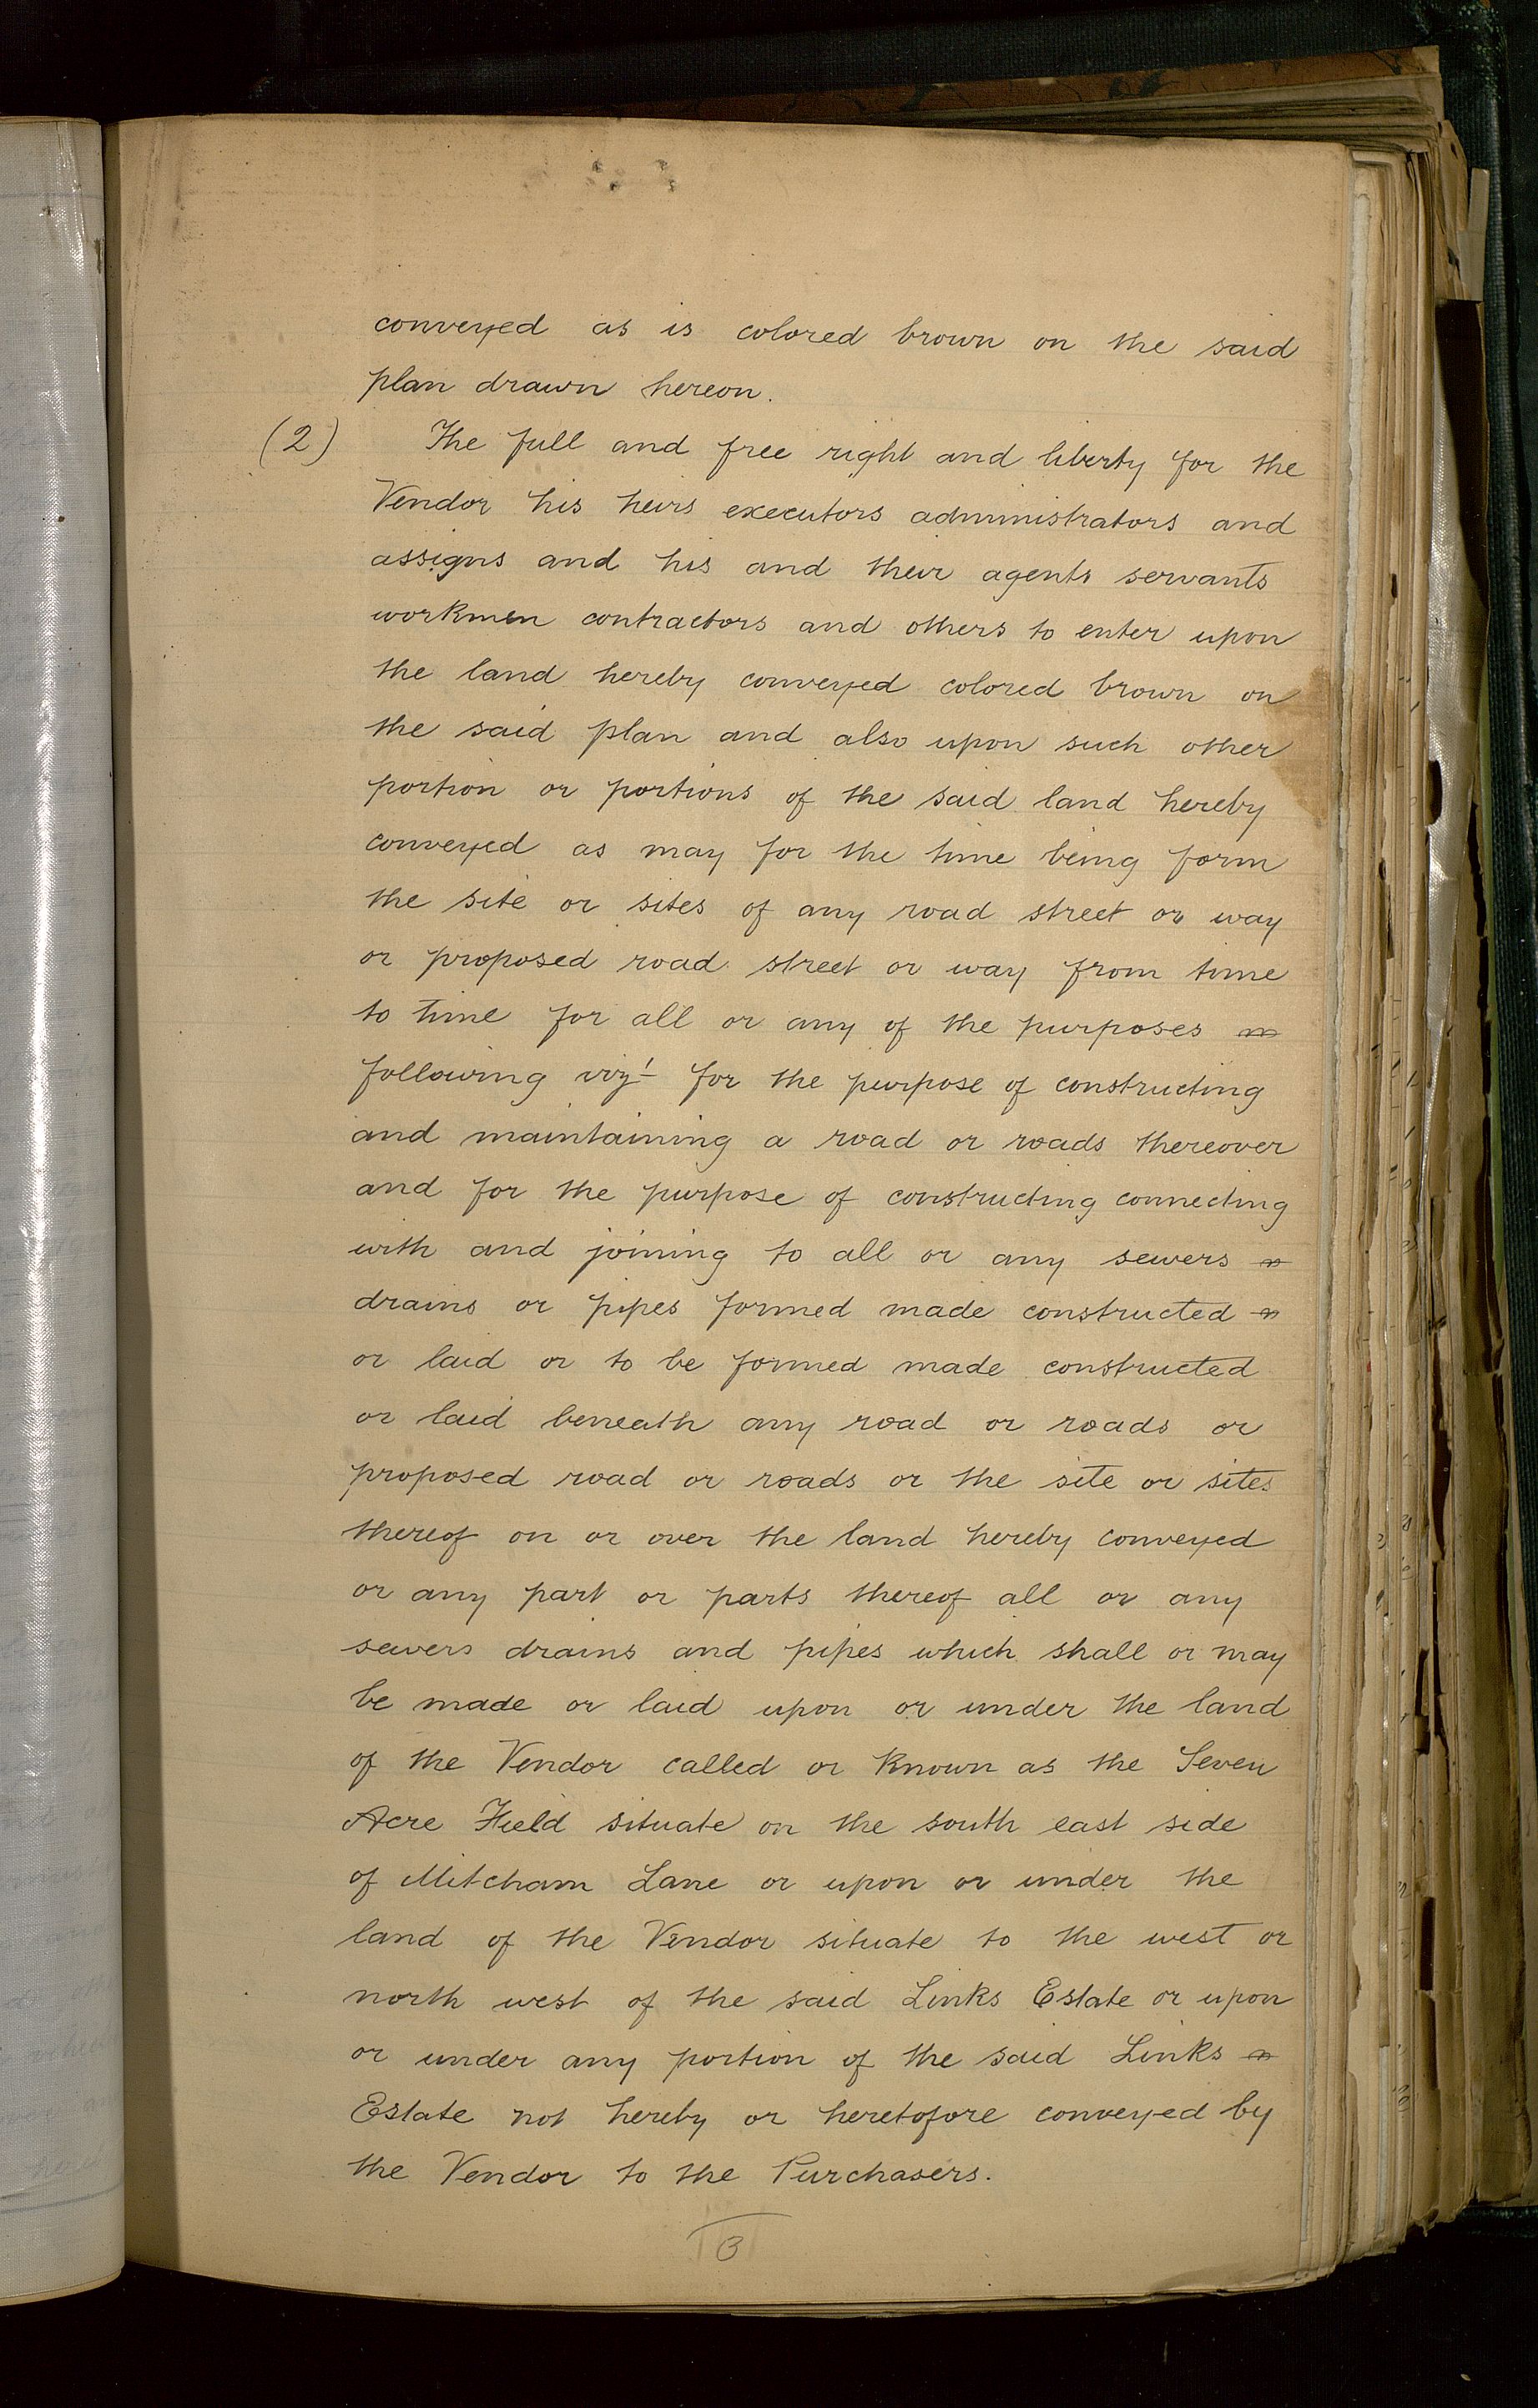 conveyed as is colored brown on the said
plan drawn hereon.
(2) The full and free right and liberty for the
Vendor his heirs executors administrators and
assigns and his and their agents servants
workmen contractors and others to enter upon
the land hereby conveyed colored brown on
the said plan and also upon such other
portion or portions of the said land hereby
conveyed as may for the time being form
the site or sites of any road street or way
or proposed road street or way from time
to time for all or any of the purposes
following viz!- for the purpose of constructing
and maintaining a road or roads thereover
and for the purpose of constructing connecting
with and joining to all or any sewers
drains or pipes formed made constructed
or laid or to be formed made constructed
or laid beneath any road or roads or
proposed road or roads or the site or sites
thereof on or over the land hereby conveyed
or any part or parts thereof all or any
sewers drains and pipes which shall or may
be made or laid upon or under the land
of the Vendor called or known as the Seven
Acre Field situate on the south east side
of Mitcham Lane or upon or under the
land of the Vendor situate to the west or
north west of the said Links Estate or upon
or under any portion of the said Links
Estate not hereby or heretofore conveyed by
the Vendor to the Purchasers.